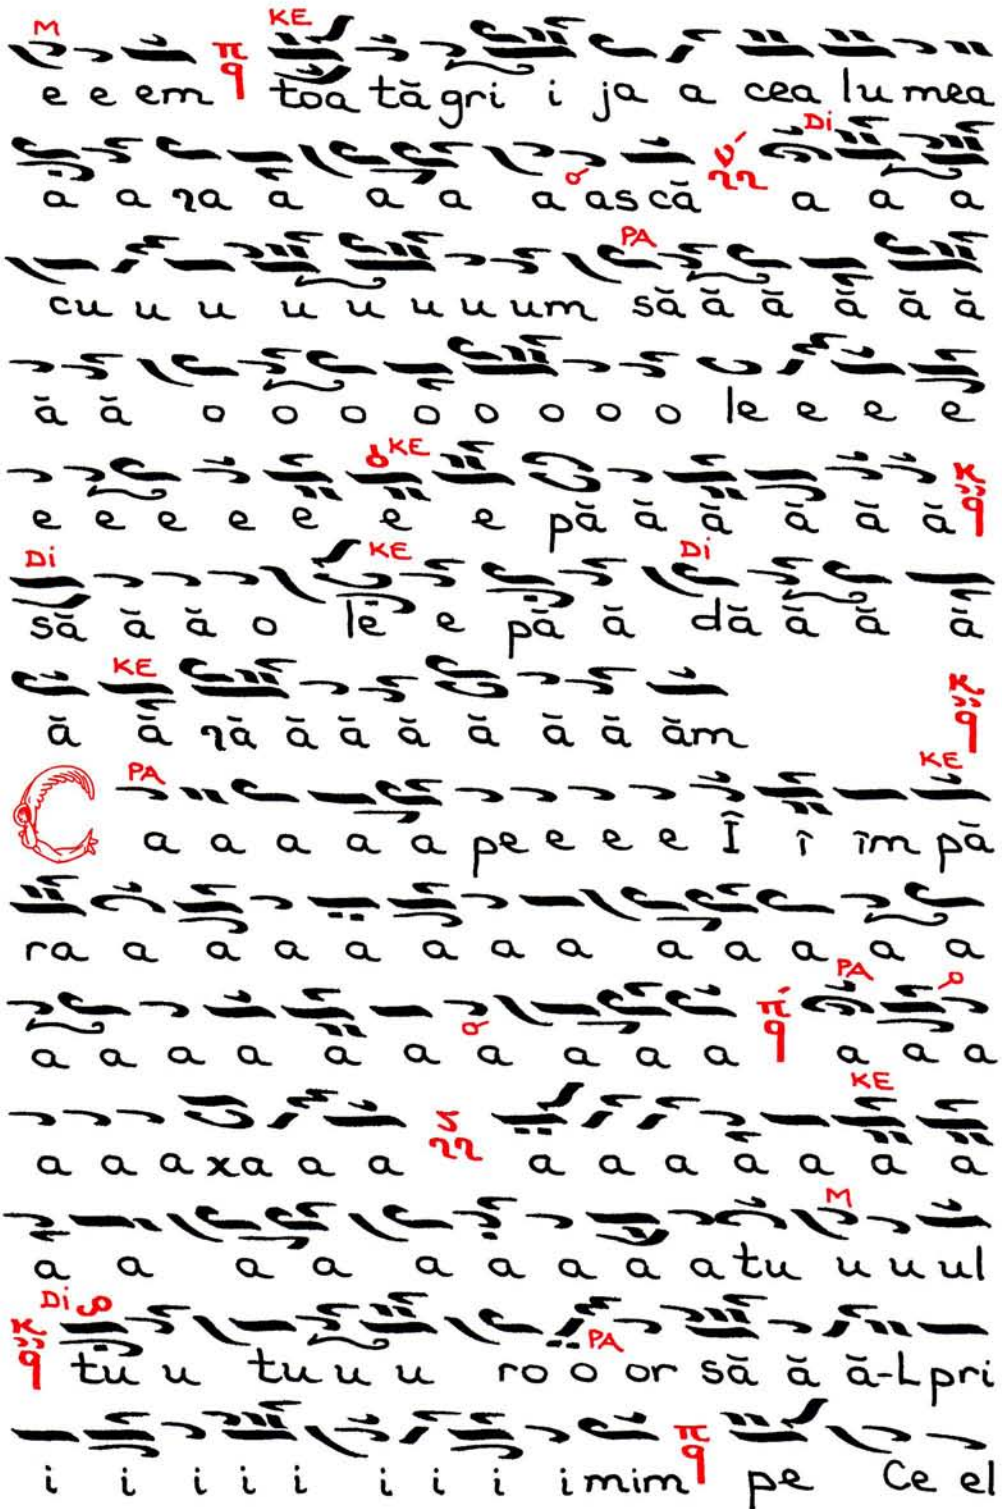 M KE
e e em π q toa tă gri i ja a cea lu mea
Di
a a ra a a a a as că a a a
PA
cu u u u u u u um să ă ă ă ă ă
ă ă o o o o o o o o le e e e
KE
e e e e e e e pă ă ă ă ă ă
Di KE Di
să ă ă o le e pă ă dă ă ă ă
KE
ă ă ră ă ă ă ă ă ă ăm
PA KE
C a a a a a pe e e e Î î îm pă
ra a a a a a a a a a a a a
PA
a a a a a a a a a a a a a
KE
a a a xa a a a a a a a a a
M
a a a a a a a a a tu u u ul
Di PA
tu u tu u u ro o or să ă ă-L pri
i i i i i i i i i mim π q pe Ce el